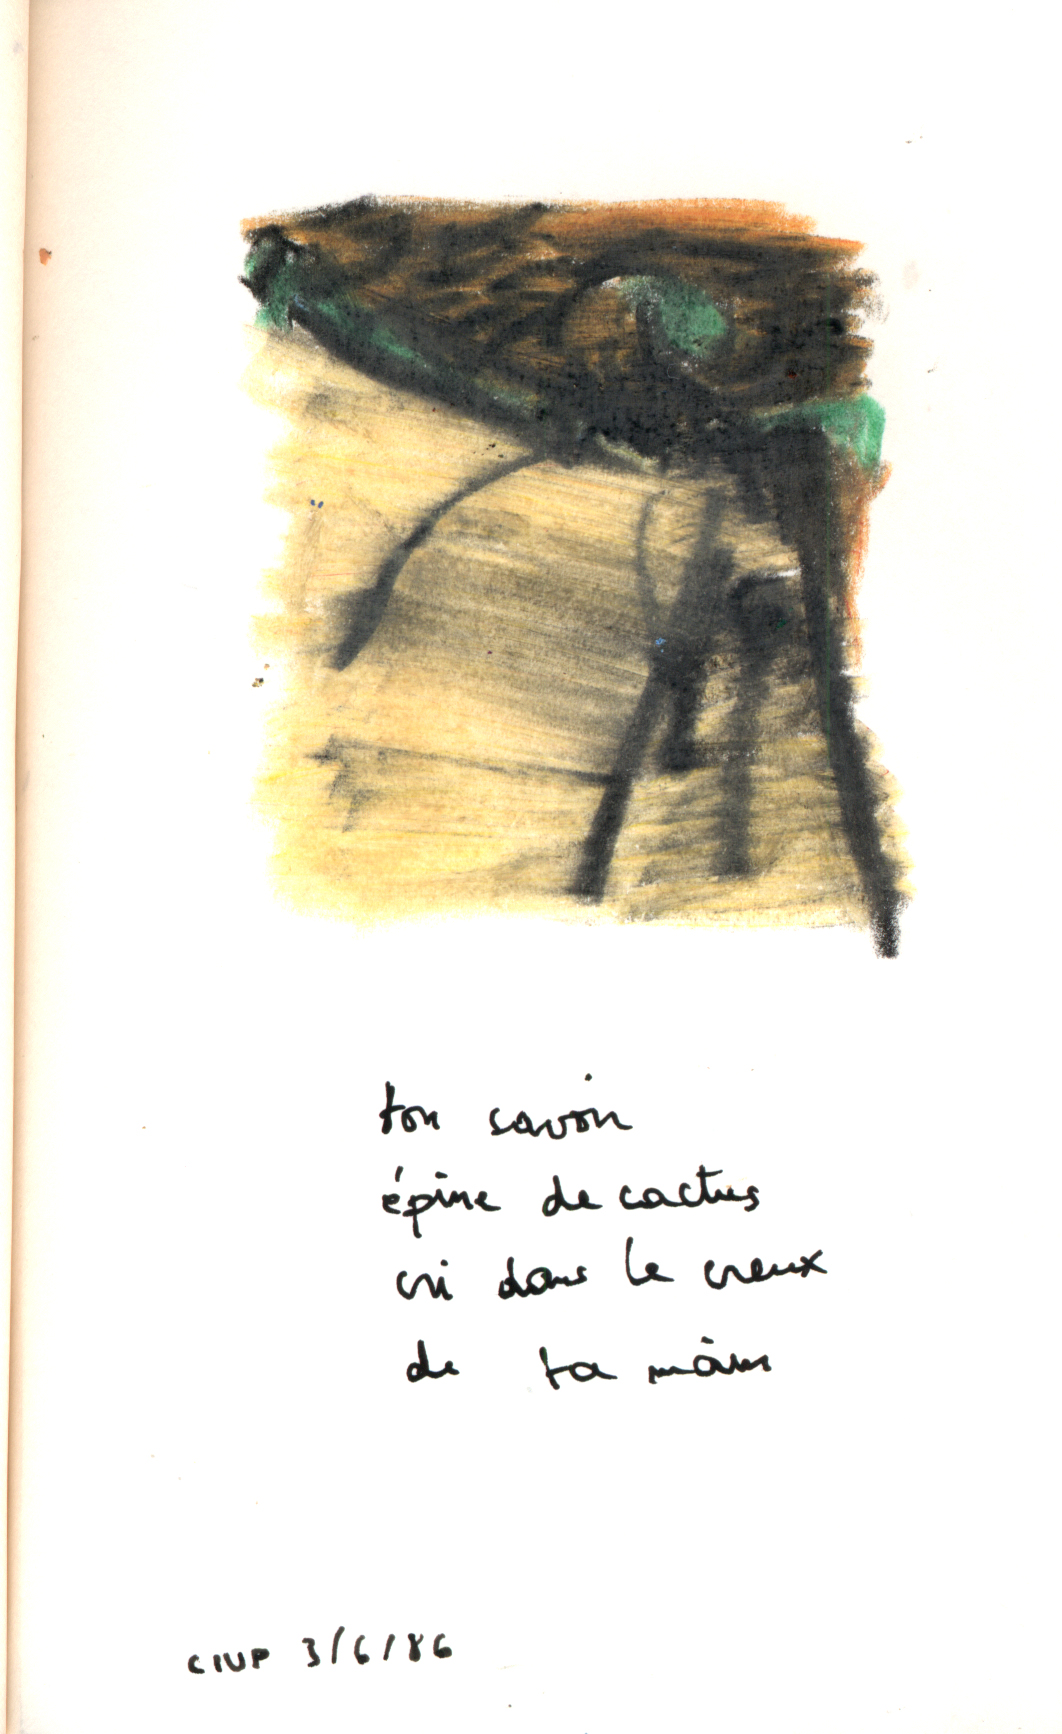 ton savoir
épine de cactus
cri dans le creux
de ta main
CIUP 3/6/86